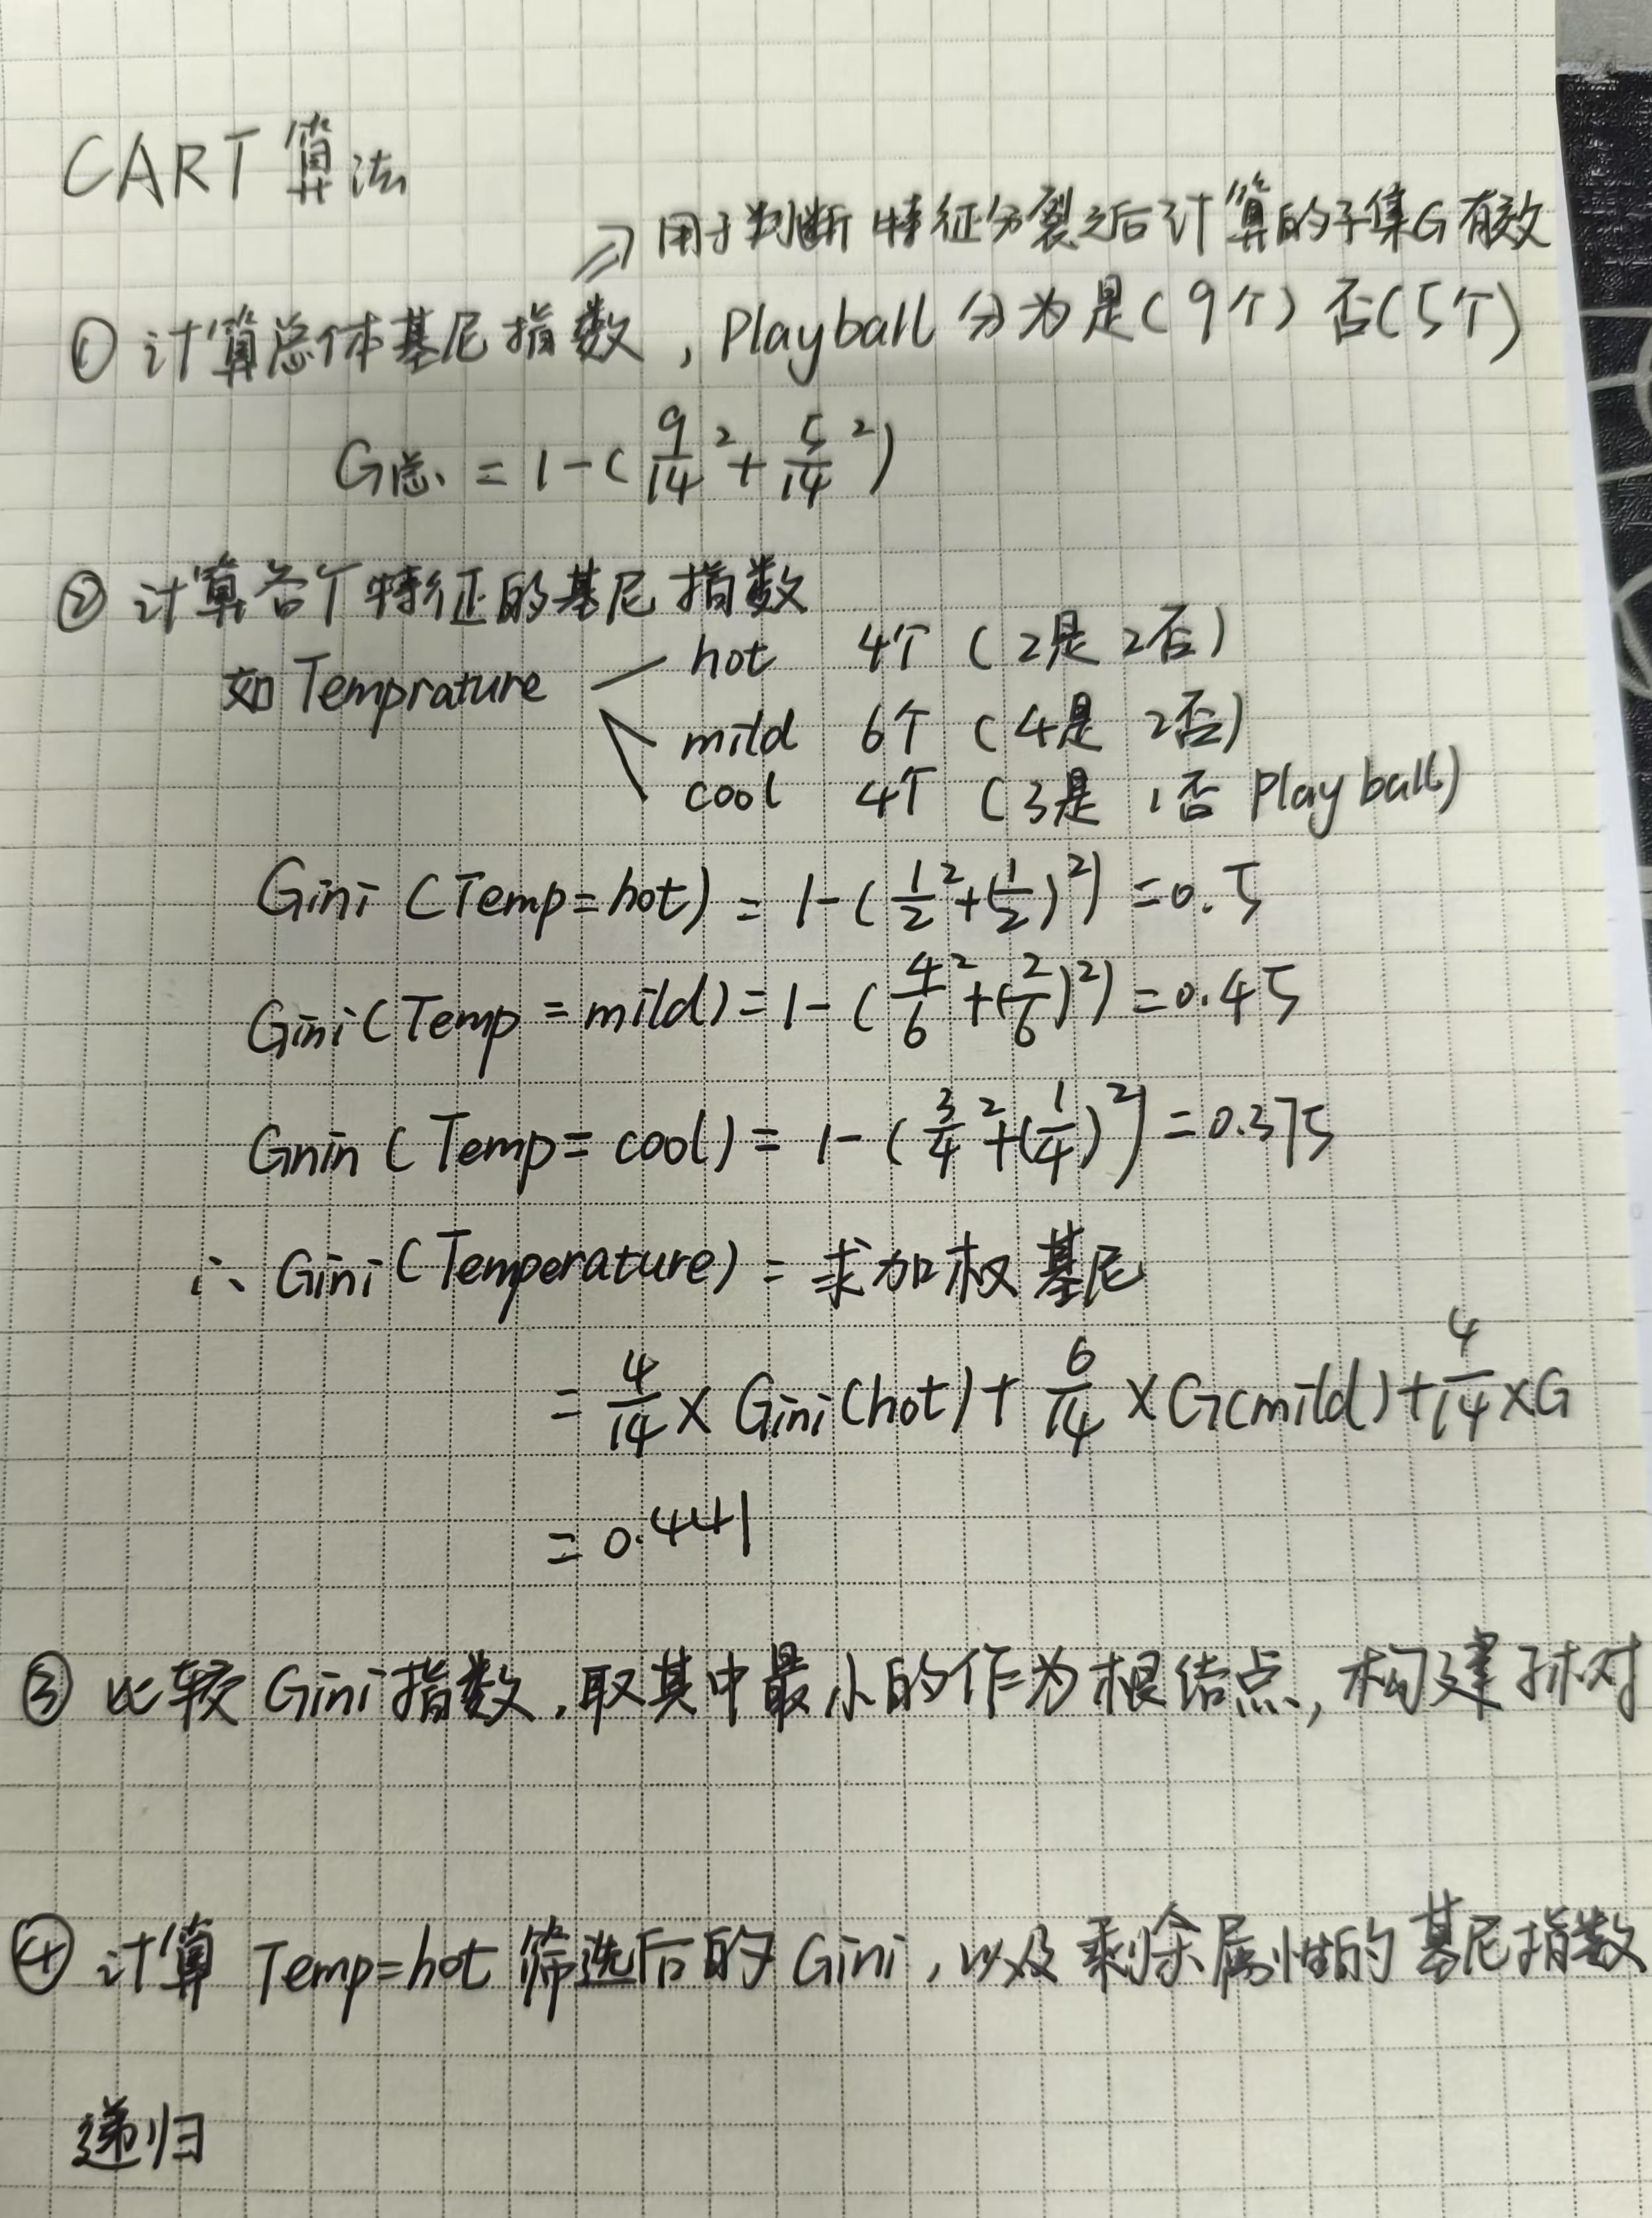 CART 算法
⇗ 用于判断 特征分裂之后计算的子集G有效
① 计算总体基尼指数，Playball 分为是（9个）否（5个）
G总 = 1-( 9/14 ² + 5/14 ² )
② 计算各个特征的基尼指数
如 Temprature hot 4个 （2是 2否）
mild 6个 （4是 2否）
cool 4个 （3是 1否 Play ball）
Gini (Temp=hot) = 1-( 1/2 ² +( 1/2 )²) =0.5
Gini (Temp = mild) = 1-( 4/6 ² +( 2/6 )²) =0.45
Gnin (Temp= cool) = 1-( 3/4 ² +( 1/4 )²) =0.375
∴ Gini (Temperature) = 求加权基尼
= 4/14 × Gini(hot) + 6/14 × G(mild) + 4/14 ×G
= 0.441
③ 比较 Gini 指数，取其中最小的作为根结点，构建
④ 计算 Temp=hot 筛选后的 Gini，以及 剩余属性的基尼指数
递归